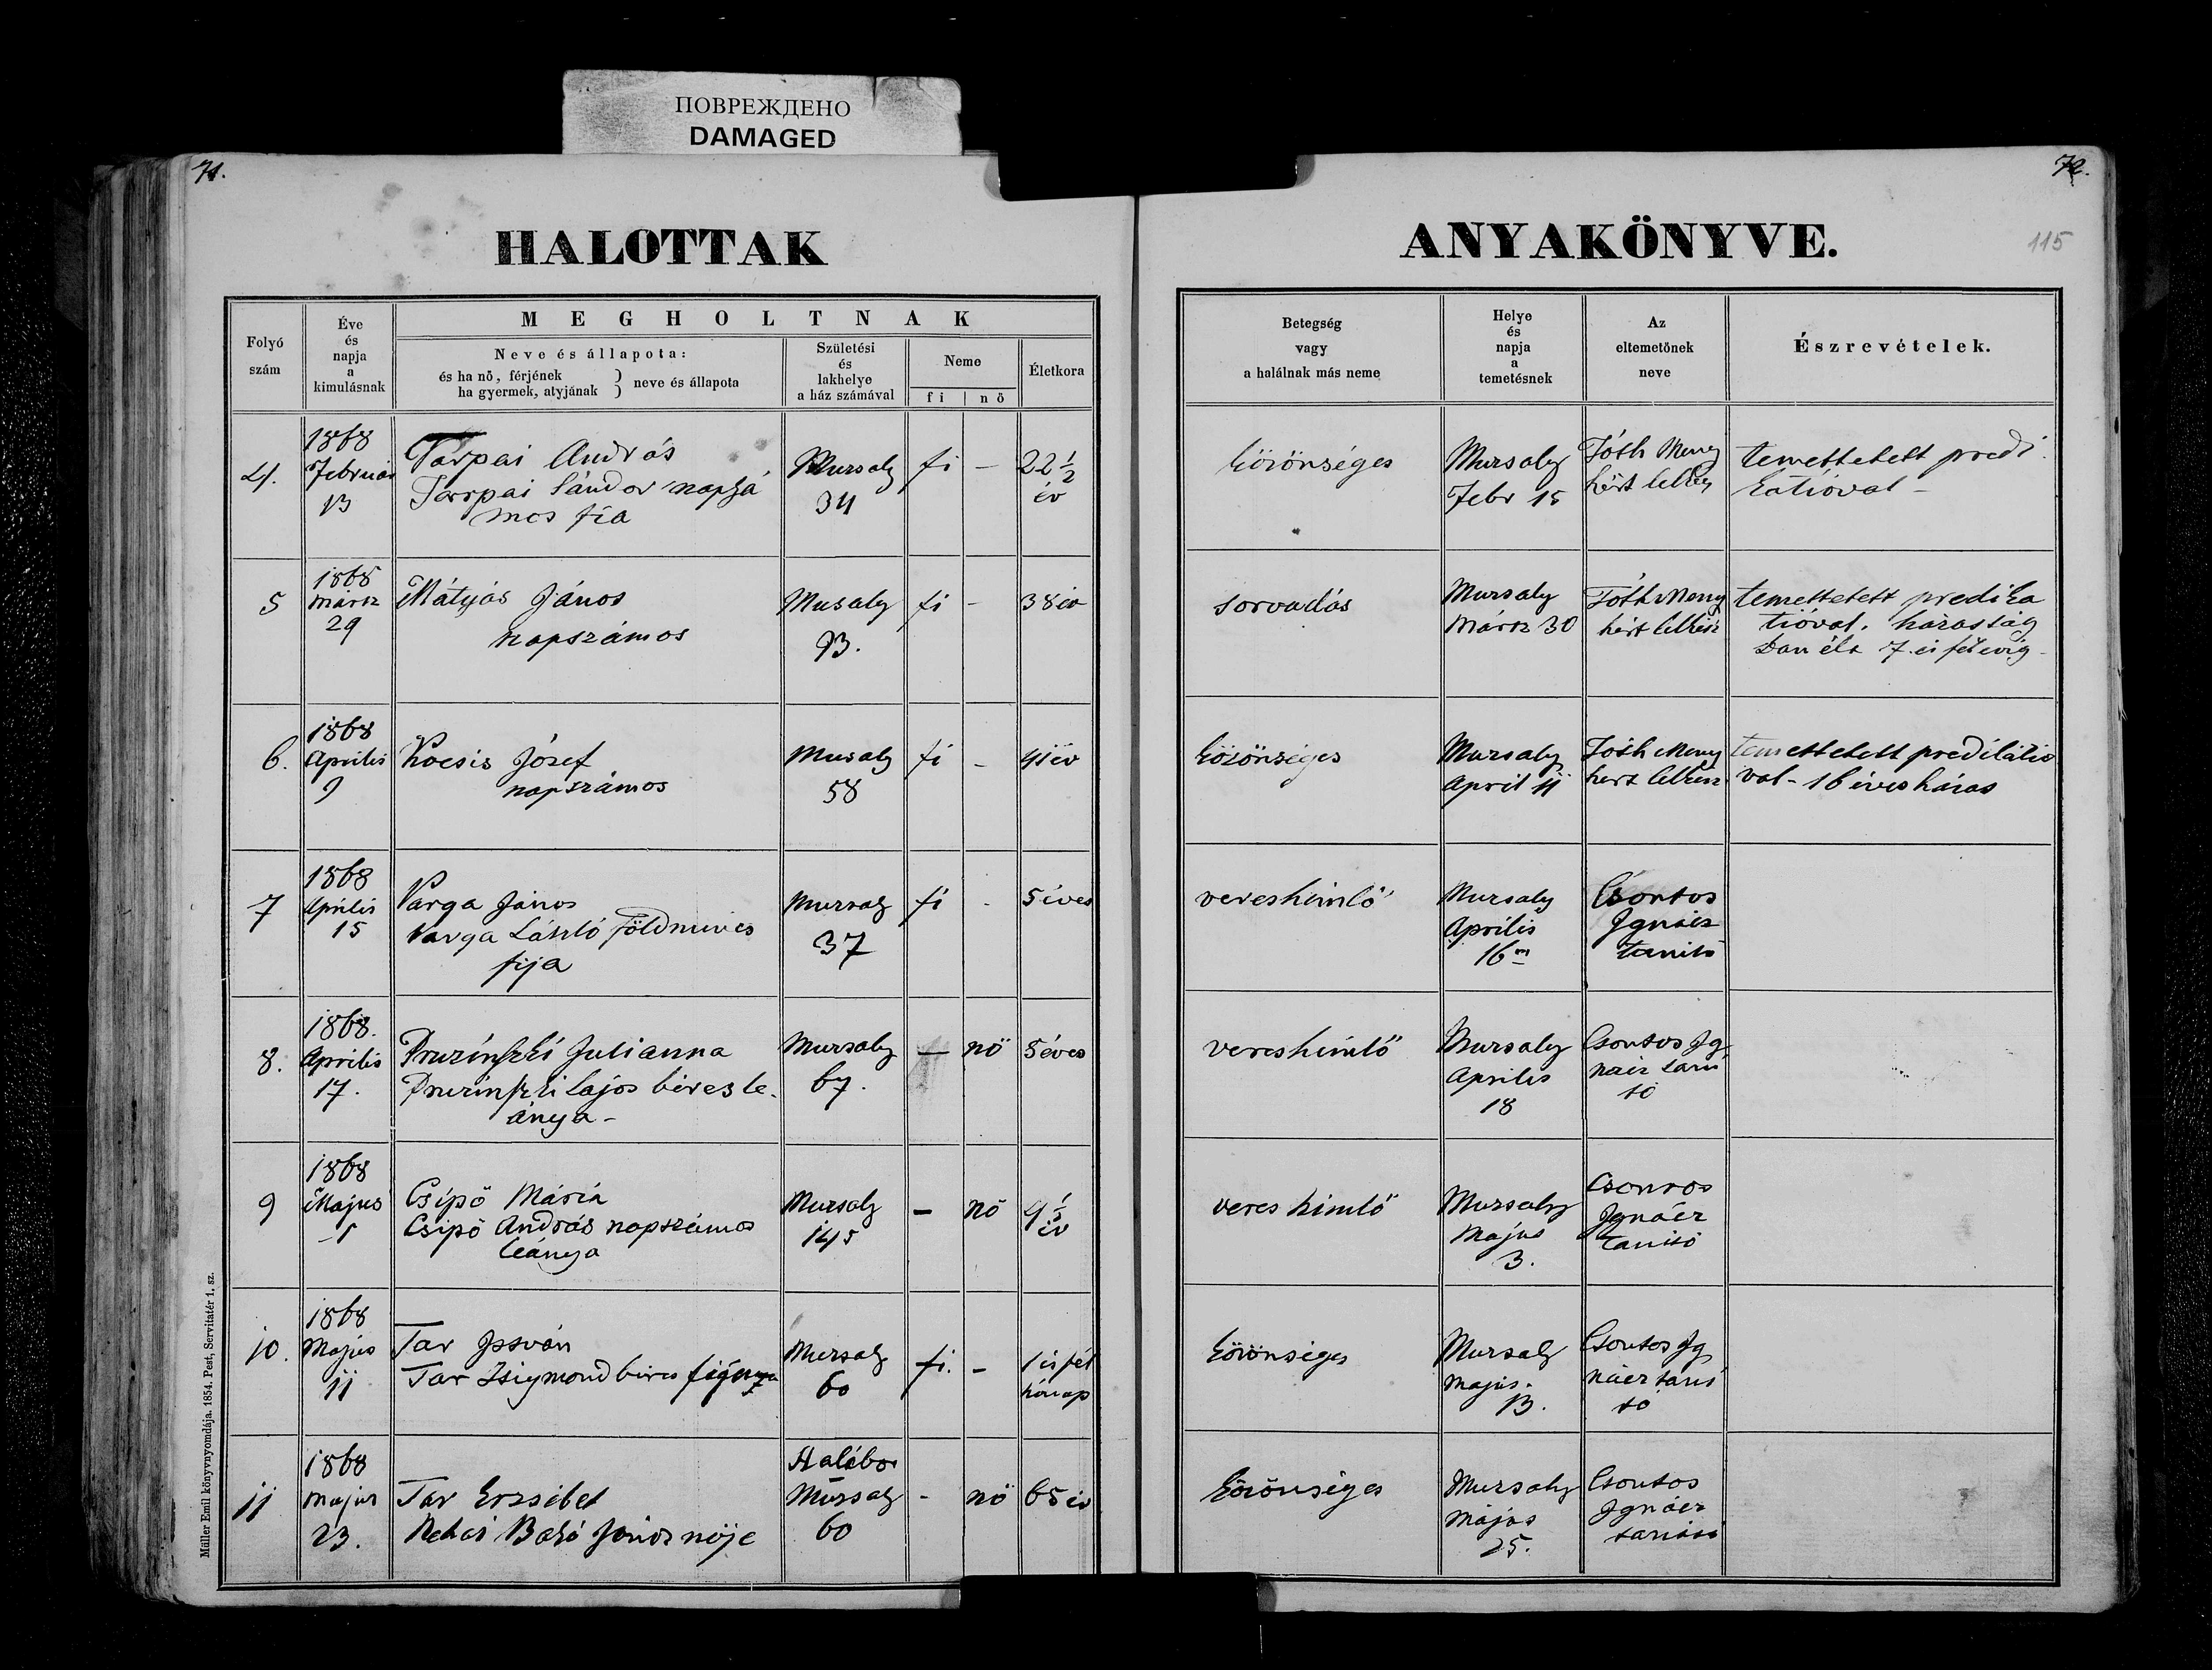 ПОВРЕЖДЕНО
DAMAGED
71.
72.
115
HALOTTAK
ANYAKÖNYVE.
Folyó szám
Éve és napja a kimulásnak
MEGHOLTNAK
Neve és állapota:
és ha nő, férjének
ha gyermek, atyjának } neve és állapota
Születési és lakhelye a ház számával
Neme
fi | nő
Életkora
Betegség vagy a halálnak más neme
Helye és napja a temetésnek
Az eltemetőnek neve
Észrevételek.
4.
1868
Februar
13
Tarpai András
Tarpai Sándor napszá
mos fia
Mursaly
34
fi
-
22 1/2
év
közönséges
Mursaly
Febr 15
Tóth Meny
hért lelkész
temettetett predi
kátióval -
5
1868
Márcz
29
Mátyás János
napszámos
Musaly
93.
fi
-
38 év
sorvadás
Mursaly
Márcz 30
Tóth Meny
hért lelkész
temettetett predika
tióval. házasság
ban élt 7 és fél évig -
6.
1868
Aprilis
9
Kocsis József
napszámos
Musaly
58
fi
-
41 év
közönséges
Mursaly
April 11
Tóth Meny
hért lelkész
temettetett predikátio
val - 16 éves házas
7
1868
Aprilis
15
Varga János
Varga László földmives
fija
Mursaly
37
fi
-
5 éves
vereshimlő
Mursaly
Aprilis
16
Csontos
Ignácz
tanitó
8.
1868.
Aprilis
17.
Pruzinszki Julianna
Pruzinszki Lajos béres le-
ánya -
Mursaly
67.
-
nő
5 éves
vereshimlő
Mursaly
Aprilis
18
Csontos Ig
nácz tani
tó
9
1868
Május
1
Csipő Mária
Csipő András napszámos
leánya
Mursaly
145
-
nő
4 1/2
év
veres himlő
Mursaly
Május
3.
Csontos
Ignácz
tanitó
10.
1868
Május
11
Tar István
Tar Zsigmond béres
Mursaly
60
fi.
-
1 és fél
hónap
közönséges
Mursaly
Május.
13.
Csontos Ig
nácz tani
tó
11
1868
Május
23.
Tar Erzsébet
Néhai Bakó János nője
Halábor
Mursaly
60
-
nő
65 év
közönséges
Mursaly
Május
25.
Csontos
Ignácz
tanitó
Müller Emil könyvnyomdája. 1854. Pest, Servitatér 1. sz.